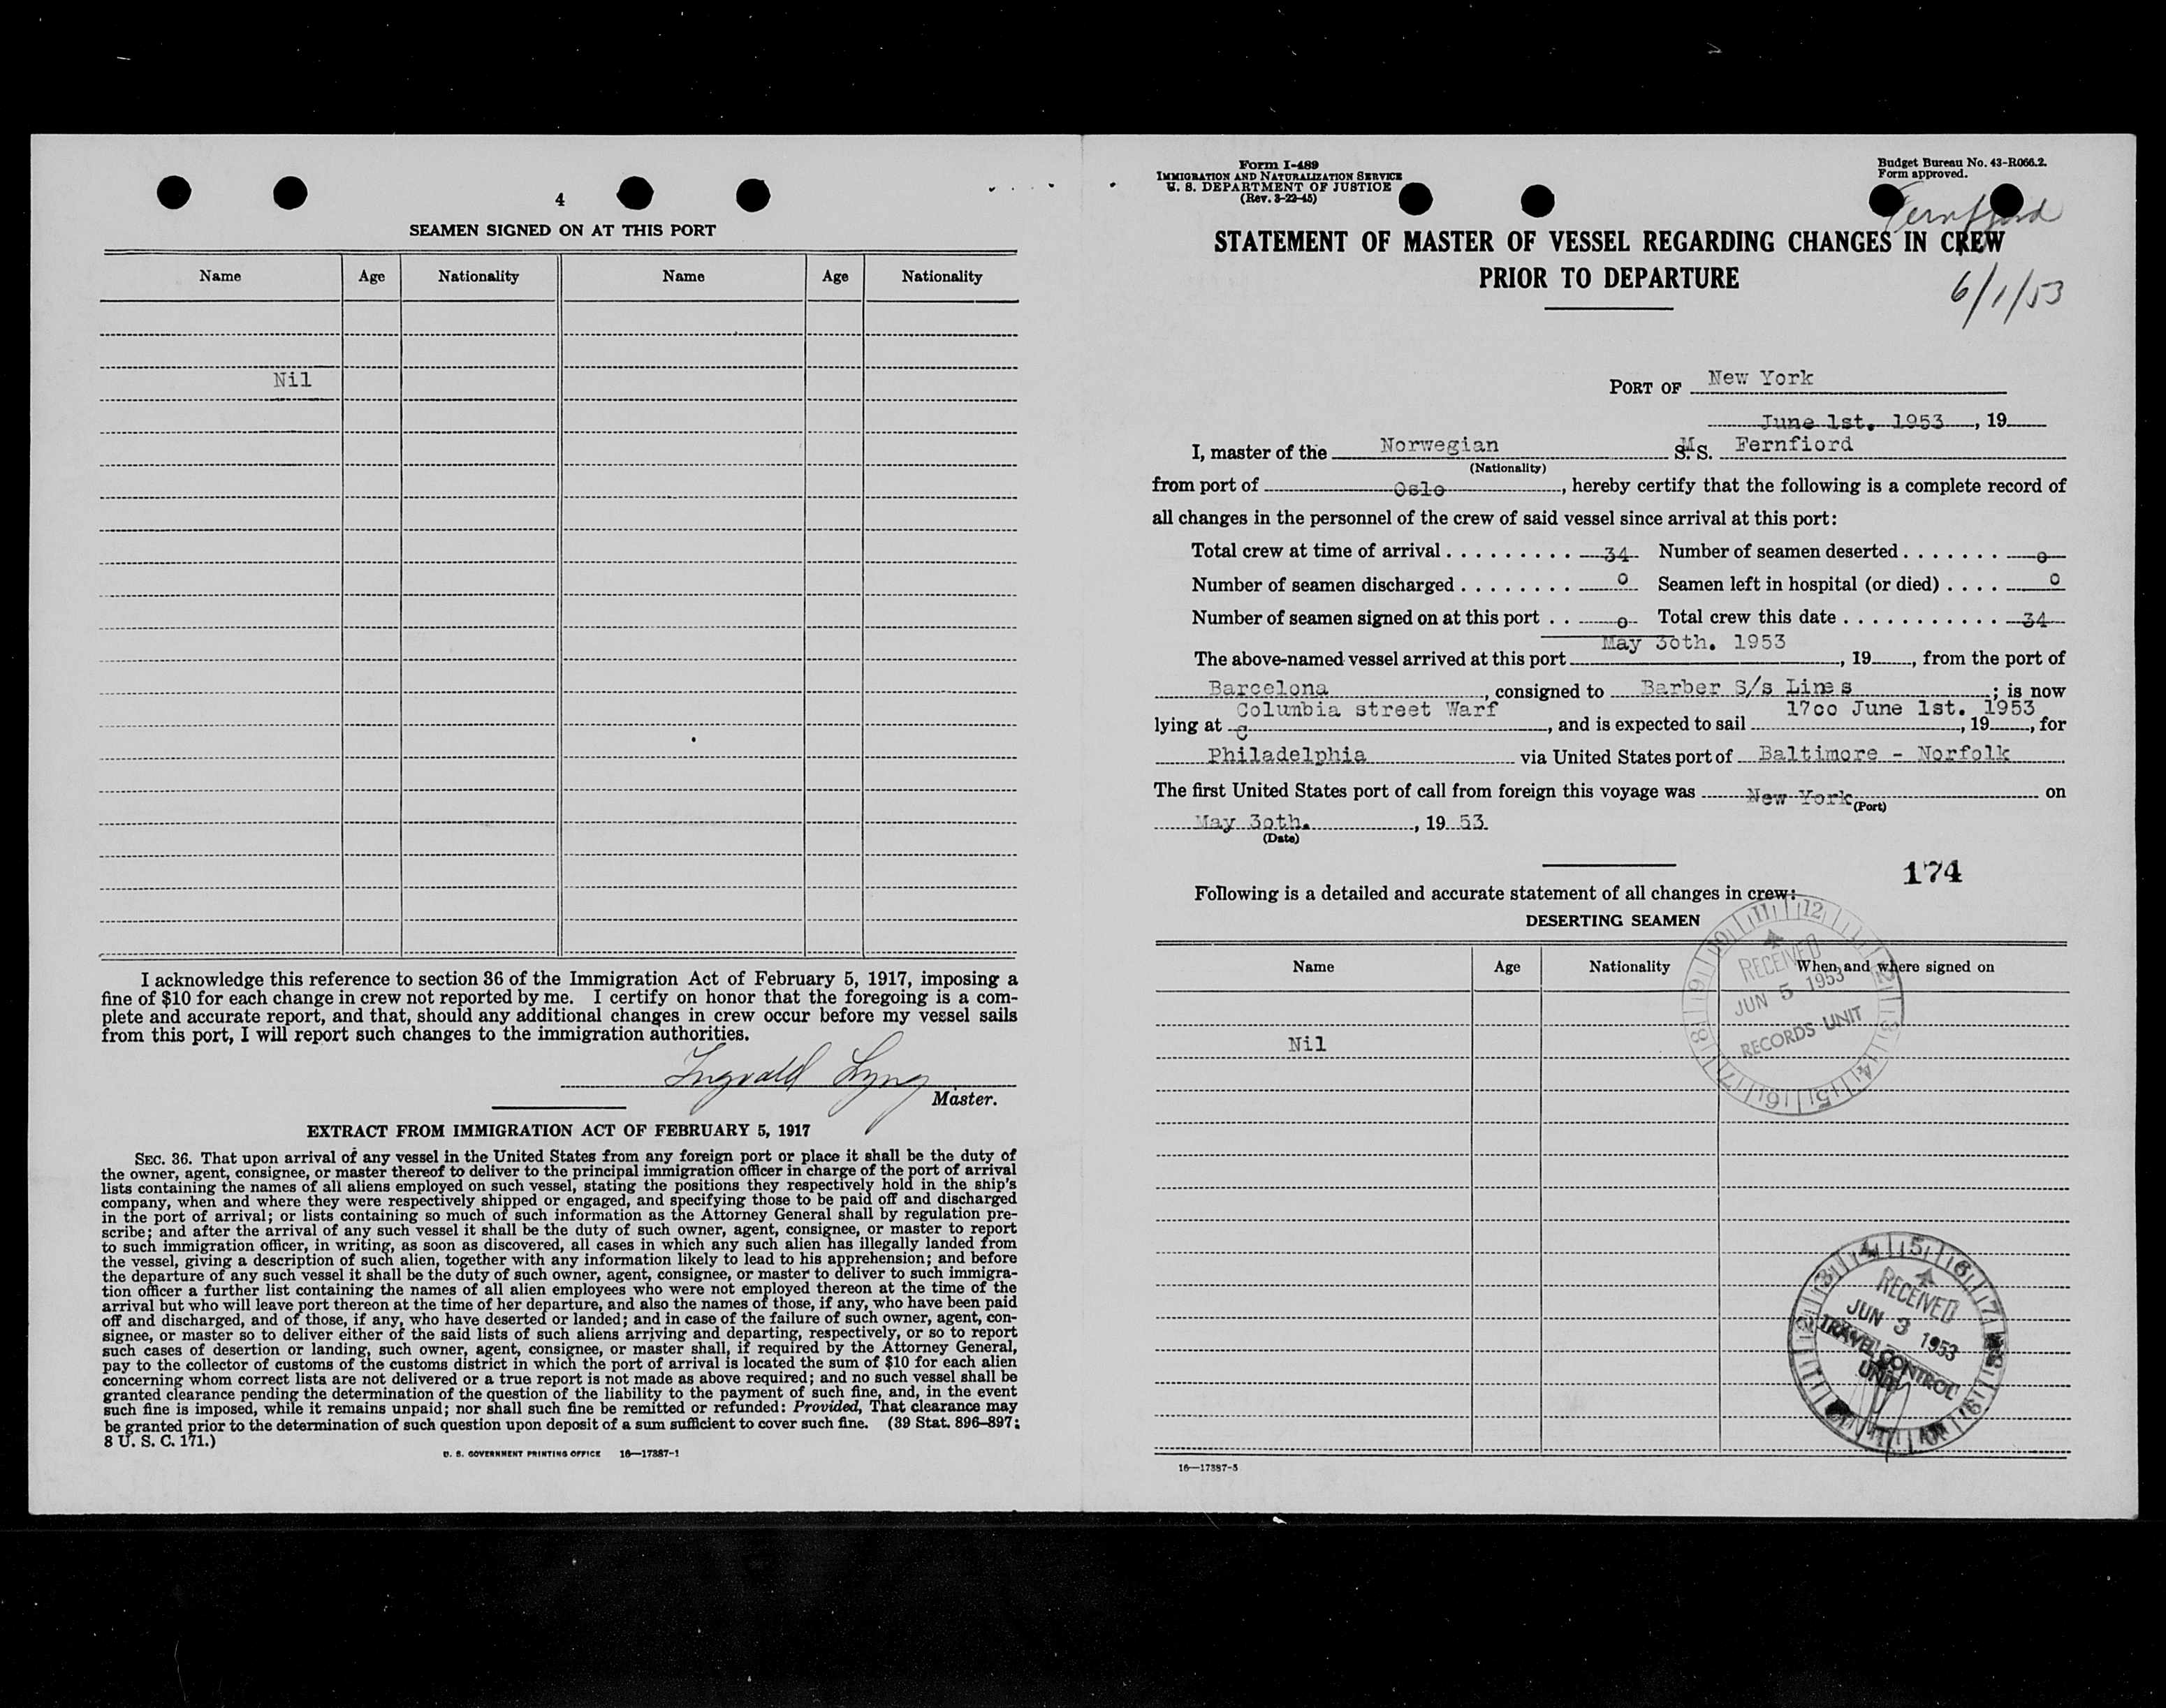 4
SEAMEN SIGNED ON AT THIS PORT
Name Age Nationality Name Age Nationality
Nil
I acknowledge this reference to section 36 of the Immigration Act of February 5, 1917, imposing a
fine of $10 for each change in crew not reported by me. I certify on honor that the foregoing is a com-
plete and accurate report, and that, should any additional changes in crew occur before my vessel sails
from this port, I will report such changes to the immigration authorities.
Ingvald Lyng
Master.
EXTRACT FROM IMMIGRATION ACT OF FEBRUARY 5, 1917
SEC. 36. That upon arrival of any vessel in the United States from any foreign port or place it shall be the duty of
the owner, agent, consignee, or master thereof to deliver to the principal immigration officer in charge of the port of arrival
lists containing the names of all aliens employed on such vessel, stating the positions they respectively hold in the ship's
company, when and where they were respectively shipped or engaged, and specifying those to be paid off and discharged
in the port of arrival; or lists containing so much of such information as the Attorney General shall by regulation pre-
scribe; and after the arrival of any such vessel it shall be the duty of such owner, agent, consignee, or master to report
to such immigration officer, in writing, as soon as discovered, all cases in which any such alien has illegally landed from
the vessel, giving a description of such alien, together with any information likely to lead to his apprehension; and before
the departure of any such vessel it shall be the duty of such owner, agent, consignee, or master to deliver to such immigra-
tion officer a further list containing the names of all alien employees who were not employed thereon at the time of the
arrival but who will leave port thereon at the time of her departure, and also the names of those, if any, who have been paid
off and discharged, and of those, if any, who have deserted or landed; and in case of the failure of such owner, agent, con-
signee, or master so to deliver either of the said lists of such aliens arriving and departing, respectively, or so to report
such cases of desertion or landing, such owner, agent, consignee, or master shall, if required by the Attorney General,
pay to the collector of customs of the customs district in which the port of arrival is located the sum of $10 for each alien
concerning whom correct lists are not delivered or a true report is not made as above required; and no such vessel shall be
granted clearance pending the determination of the question of the liability to the payment of such fine, and, in the event
such fine is imposed, while it remains unpaid; nor shall such fine be remitted or refunded: Provided, That clearance may
be granted prior to the determination of such question upon deposit of a sum sufficient to cover such fine. (39 Stat. 896–897;
8 U. S. C. 171.)
U. S. GOVERNMENT PRINTING OFFICE 16—17387-1
Form I-489
IMMIGRATION AND NATURALIZATION SERVICE
U. S. DEPARTMENT OF JUSTICE
(Rev. 3-22-45)
Budget Bureau No. 43-R066.2.
Form approved.
Fernfjord
STATEMENT OF MASTER OF VESSEL REGARDING CHANGES IN CREW
PRIOR TO DEPARTURE
6/1/53
PORT OF New York
June 1st. 1953, 19
I, master of the Norwegian M S. S. Fernfiord
(Nationality)
from port of Oslo, hereby certify that the following is a complete record of
all changes in the personnel of the crew of said vessel since arrival at this port:
Total crew at time of arrival 34 Number of seamen deserted o
Number of seamen discharged o Seamen left in hospital (or died) o
Number of seamen signed on at this port o Total crew this date 34
The above-named vessel arrived at this port May 3oth. 1953, 19, from the port of
Barcelona, consigned to Barber S/s Lines; is now
lying at Columbia street Warf, and is expected to sail 17oo June 1st. 1953, 19, for
Philadelphia via United States port of Baltimore - Norfolk
The first United States port of call from foreign this voyage was New York on
(Port)
May 3oth., 19 53
(Date)
174
Following is a detailed and accurate statement of all changes in crew:
DESERTING SEAMEN
Name Age Nationality When and where signed on
Nil
11 12 1 2 3 4 5 6 7 8 9 10
RECEIVED
JUN 5 1953
RECORDS UNIT
RECEIVED
JUN 3 1953
TRAVEL CONTROL
UNIT
16—17387-5